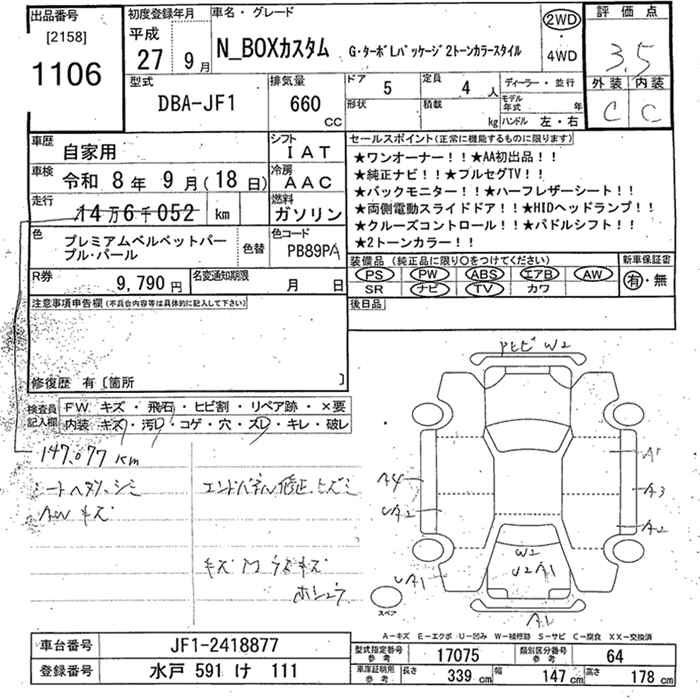 出品番号
[2158]
1106
初度登録年月
平成
27年 9月
車名・グレード
N_BOXカスタム G・ターボLパッケージ2トーンカラースタイル
2WD
・
4WD
評価点
3.5
外装 内装
C C
型式
DBA-JF1
排気量
660
CC
ドア 5
形状
定員 4 人
積載 kg
ディーラー・並行
モデル年式 年
ハンドル 左・右
車歴 自家用
シフト IAT
車検 令和 8年 9月(18日)
冷房 AAC
走行 14万6千052 km
燃料 ガソリン
色 プレミアムベルベットパープル・パール
色替
色コード PB89PA
R券 9,790円
名変通知期限 月 日
セールスポイント(正常に機能するものに限ります)
★ワンオーナー!!★AA初出品!!
★純正ナビ!!★フルセグTV!!
★バックモニター!!★ハーフレザーシート!!
★両側電動スライドドア!!★HIDヘッドランプ!!
★クルーズコントロール!!★パドルシフト!!
★2トーンカラー!!
装備品(純正品に限り○をつけてください)
PS PW ABS エアB AW
SR ナビ TV カワ
新車保証書
有・無
後日品
注意事項申告欄(不具合内容等は具体的に記入して下さい)
修復歴 有[箇所 ]
検査員記入欄
FW キズ・飛石・ヒビ割・リペア跡・×要
内装・キズ・汚レ・コゲ・穴・ズレ・キレ・破レ
147,077 km
シートヘタリ、シミ
AWキズ
エンドパネル修正、ヒズミ
PヒビW2
A1
A3
A2
A4
UA2
UA1
W2
U2A1
A1
スペア
A-キズ E-エクボ U-凹み W-補修跡 S-サビ C-腐食 XX-交換済
車台番号 JF1-2418877
登録番号 水戸 591 け 111
型式指定番号 参考 17075
類別区分番号 参考 64
車庫証明用 参考 長さ 339 cm 幅 147 cm 高さ 178 cm